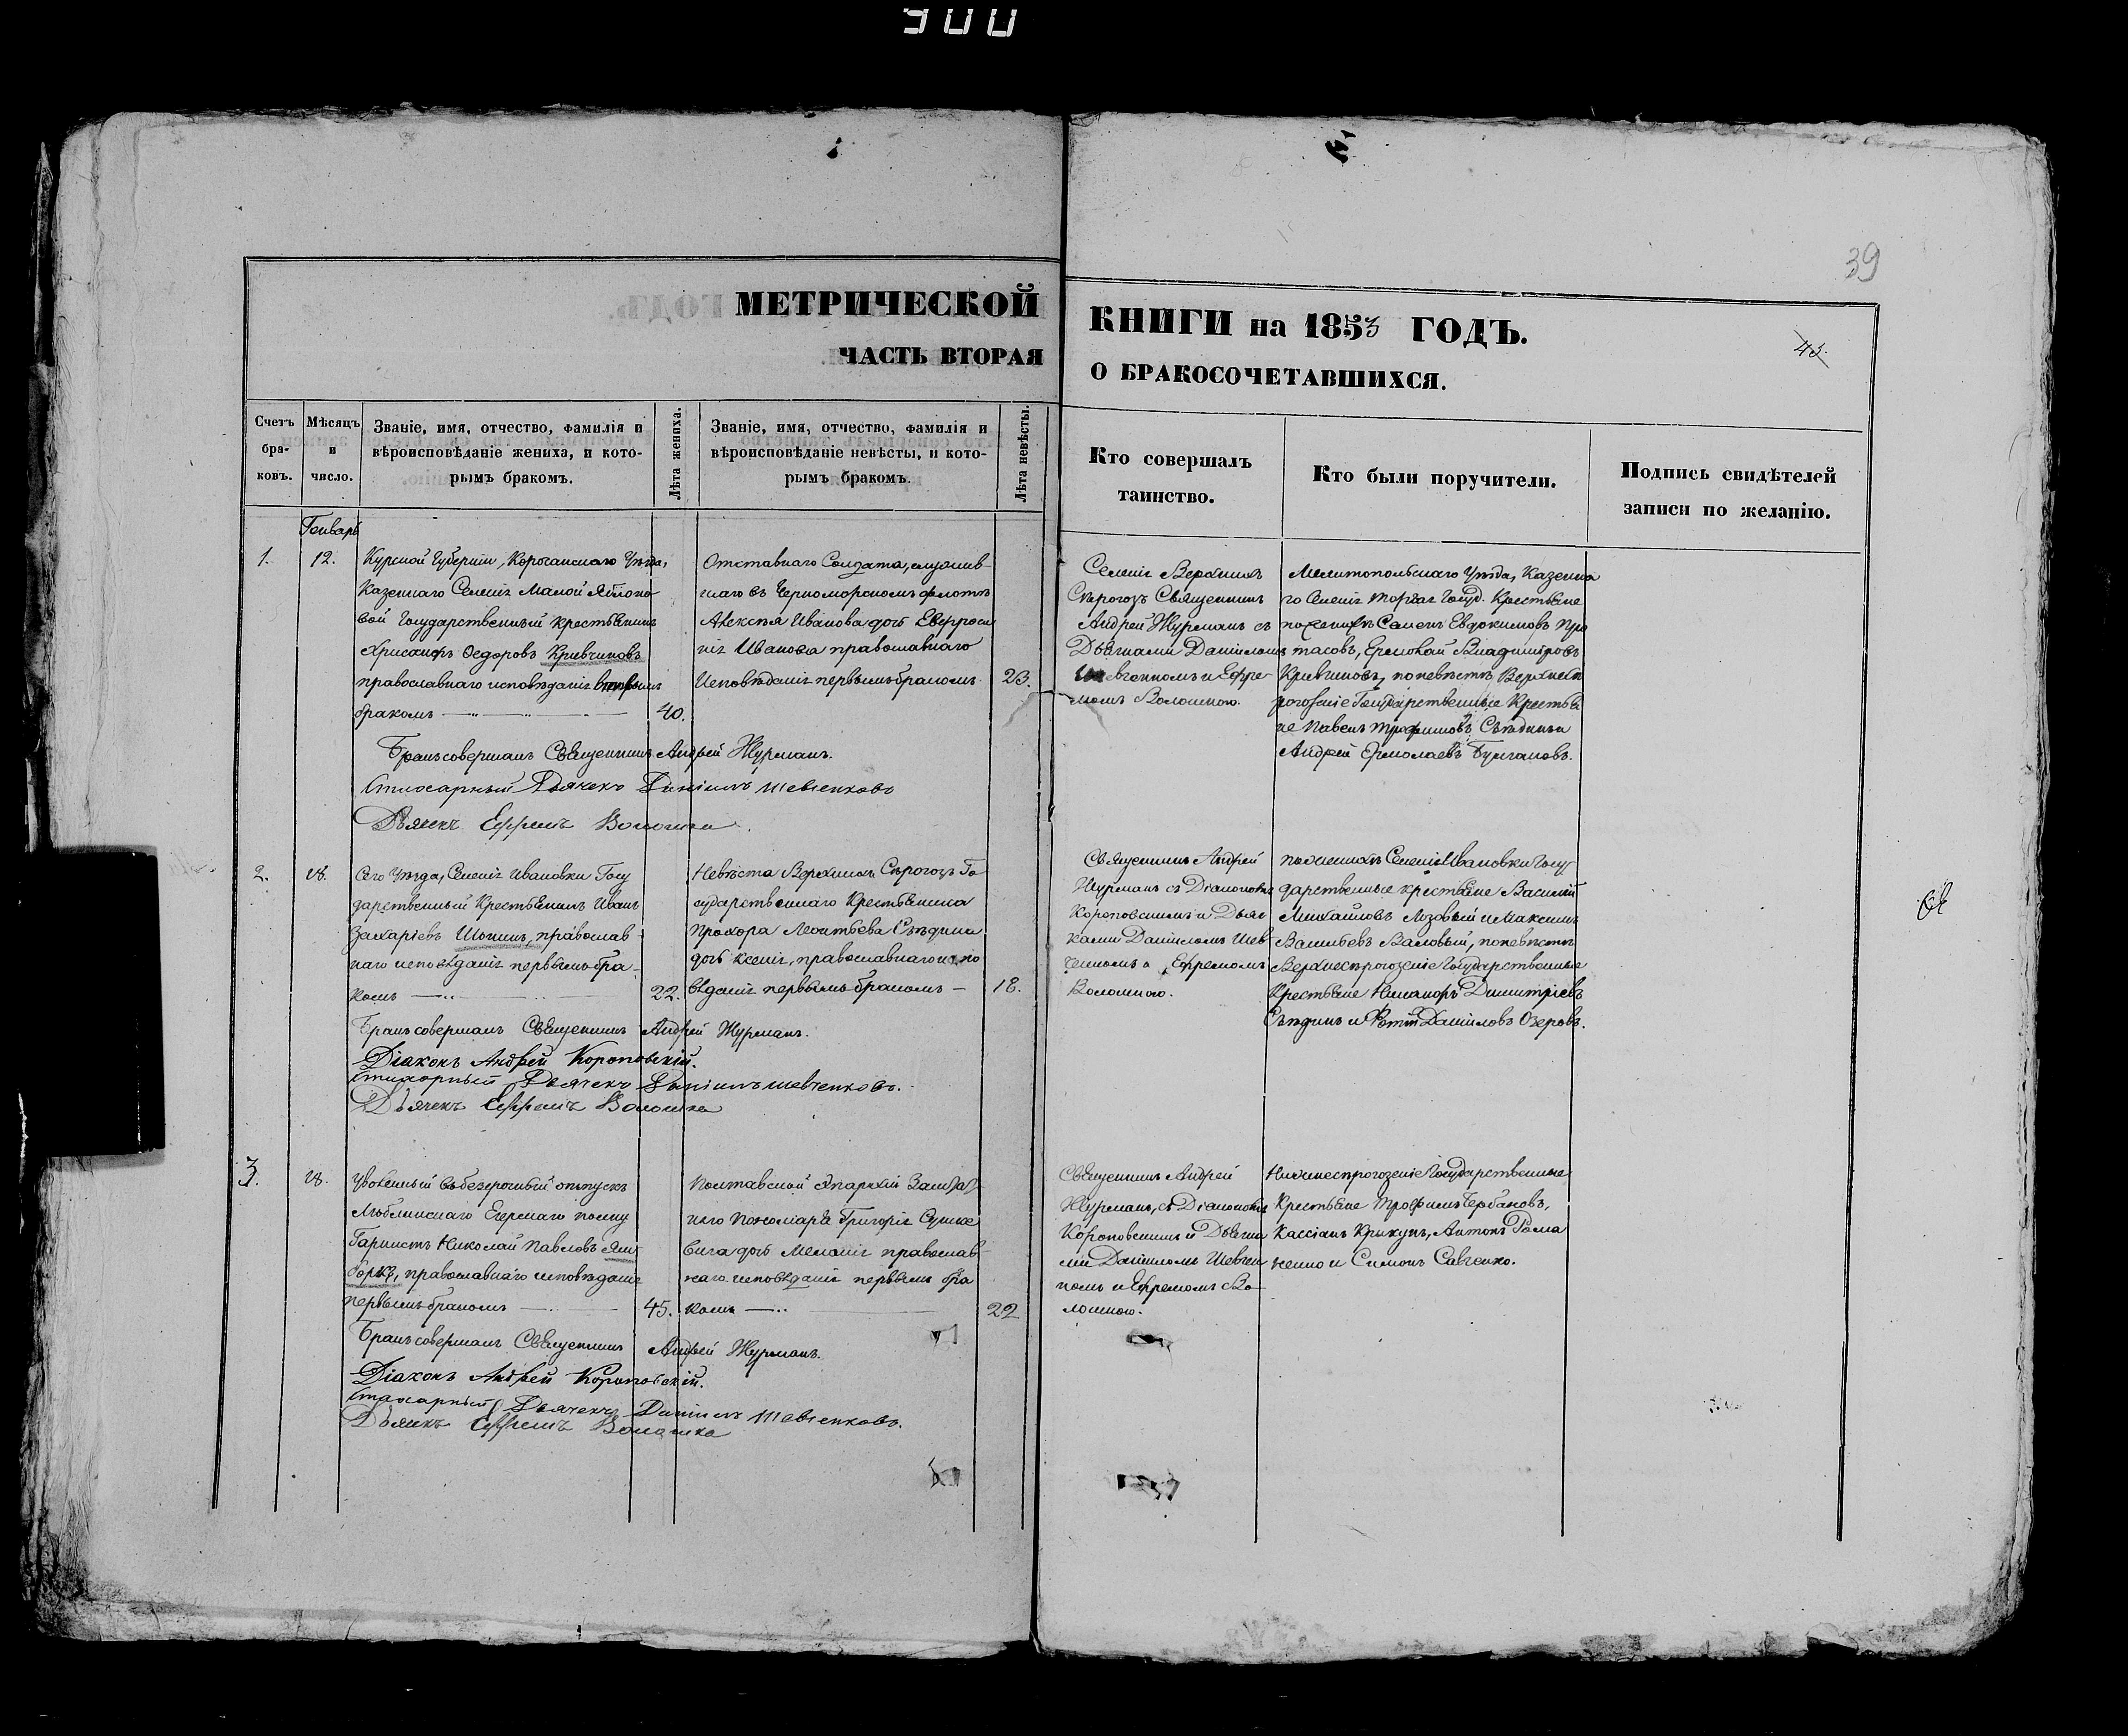 900
39
МЕТРИЧЕСКОЙ КНИГИ на 1853 ГОДЪ.
45.
ЧАСТЬ ВТОРАЯ О БРАКОСОЧЕТАВШИХСЯ.
Счетъ бра-ковъ.
Мѣсяцъ и число.
Званіе, имя, отчество, фамилія и
вѣроисповѣданіе жениха, и кото-
рымъ бракомъ.
Лѣта жениха.
Званіе, имя, отчество, фамилія и
вѣроисповѣданіе невѣсты, и кото-
рымъ бракомъ.
Лѣта невѣсты.
Кто совершалъ
таинство.
Кто были поручители.
Подпись свидѣтелей
записи по желанію.
Генварь
1.
12.
Курской Губерніи, Корочанскаго Уѣзда,
Казеннаго Селенія Малой Яблоно-
вой Государственный крестьянинъ
Хрисанфъ Ѳедоровъ Кривчиковъ
православнаго исповѣданія вторымъ
бракомъ
40.
Отставнаго Солдата, служив-
шаго въ Черноморскомъ флотѣ
Алексѣя Иванова дочь Евфроси
нія Иванова православнаго
Исповѣданія первымъ бракомъ
23.
Селенія Верхнихъ
Сѣрогозъ Священникъ
Андрей Журманъ съ
Дьячками Даніиломъ
Шевченкомъ и Ефре-
момъ Волошкою.
Мелитопольскаго Уѣзда, Казенна
го Селенія Торгая Госуд. Крестьяне
по женихѣ Семенъ Евдокимовъ Про
тасовъ, Ермолай Владиміровъ
Кривчиковъ, по невѣстѣ Верхнесѣ
рогозскіе Государственные Крестья
не Павелъ Трофимовъ Сѣединъ и
Андрей Ермолаевъ Булгаковъ.
Бракъ совершалъ Священникъ Андрей Журманъ.
Стихарный Дьячекъ Даніилъ Шевченковъ
Дьячекъ Ефремъ Волошка.
2.
18.
Сего Уѣзда, Селенія Ивановки Госу
дарственный Крестьянинъ Иванъ
Захаріевъ Шопинъ, православ-
наго исповѣданія первымъ бра-
комъ
22.
Невѣста Верхнихъ Сѣрогозъ Го
сударственнаго Крестьянина
Прохора Леонтьева Сѣедина
дочь Ксенія, православнаго испо
вѣданія первымъ бракомъ
18.
Священникъ Андрей
Журманъ съ Діакономъ
Короповскимъ и Дьяч
ками Даніиломъ Шев-
ченкомъ и Ефремомъ
Волошкою.
по женихѣ Селенія Ивановки Госу-
дарственные крестьяне Василій
Михайловъ Лозовый и Максимъ
Васильевъ Валовый, по невѣстѣ
Верхнесѣрогозскіе Государственные
Крестьяне Никаноръ Димитріевъ
Сѣединъ и Фотій Даніиловъ Озеровъ.
Бракъ совершалъ Священникъ Андрей Журманъ.
Діаконъ Андрей Короповскій.
Стихарный Дьячекъ Даніилъ Шевченковъ.
Дьячекъ Ефремъ Волошка
3.
18.
Уволенный въ безсрочный отпускъ
Люблинскаго Егерскаго полку
Гарнистъ Николай Павловъ
православнаго исповѣданія
первымъ бракомъ
45.
Полтавской Епархіи
наго Пономаря Григорія
дочь Меланія православ-
наго исповѣданія первымъ бра
комъ
22
Священникъ Андрей
Журманъ, съ Діакономъ
Короповскимъ и Дьячка
ми Даніиломъ Шевчен
комъ и Ефремомъ Во-
лошкою.
Нижнесѣрогозскіе Государственные
Крестьяне Трофимъ Щербаковъ,
Кассіанъ Крыкунъ, Антонъ Рома
ненко и Симонъ Савченко.
Бракъ совершалъ Священникъ Андрей Журманъ.
Діаконъ Андрей Короповскій.
Стихарный Дьячекъ Даніилъ Шевченковъ.
Дьячекъ Ефремъ Волошка